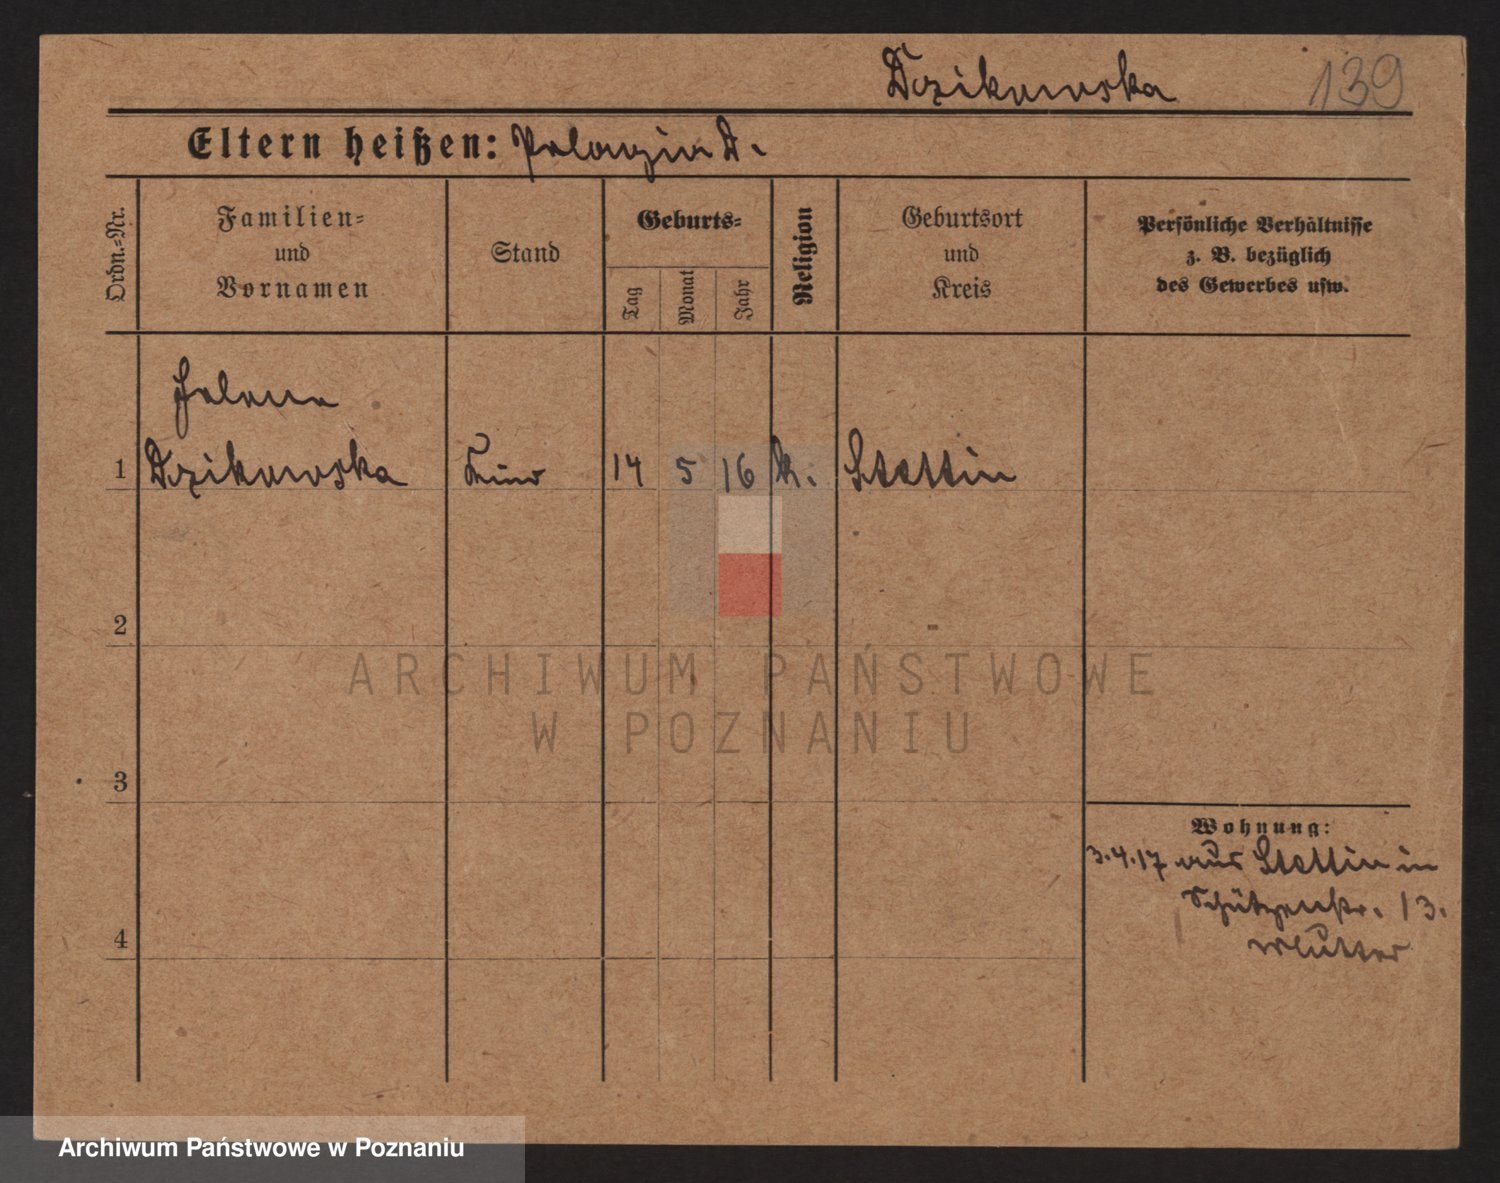 Dzikowska 139
Eltern heißen: Pelagia D.
Ordn.-Nr.
Familien-
und
Vornamen
Stand
Geburts-
Tag
Monat
Jahr
Religion
Geburtsort
und
Kreis
Persönliche Verhältnisse
z. B. bezüglich
des Gewerbes usw.
Helena
1 Dzikowska Kind 14 5 16 k. Stettin
2
ARCHIWUM PAŃSTWOWE
W POZNANIU
3
Wohnung:
3.4.17 aus Stettin in
Schützenstr. 13.
Mutter
4
Archiwum Państwowe w Poznaniu